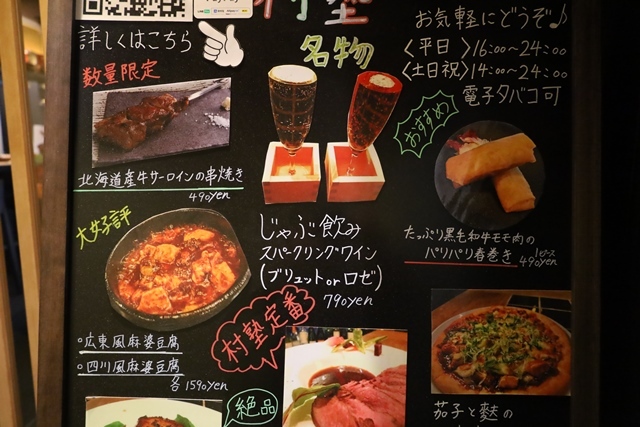 村塾
詳しくはこちら
数量限定
北海道産牛サーロインの串焼き
490yen
大好評
○広東風麻婆豆腐
○四川風麻婆豆腐
各1590yen
名物
じゃぶ飲み
スパークリングワイン
(ブリュット or ロゼ)
790yen
村塾定番
絶品
お気軽にどうぞ♪
〈平日〉16:00~24:00
〈土日祝〉14:00~24:00
電子タバコ可
おすすめ
たっぷり黒毛和牛モモ肉の
パリパリ春巻き
1ピース
490yen
茄子と麩の